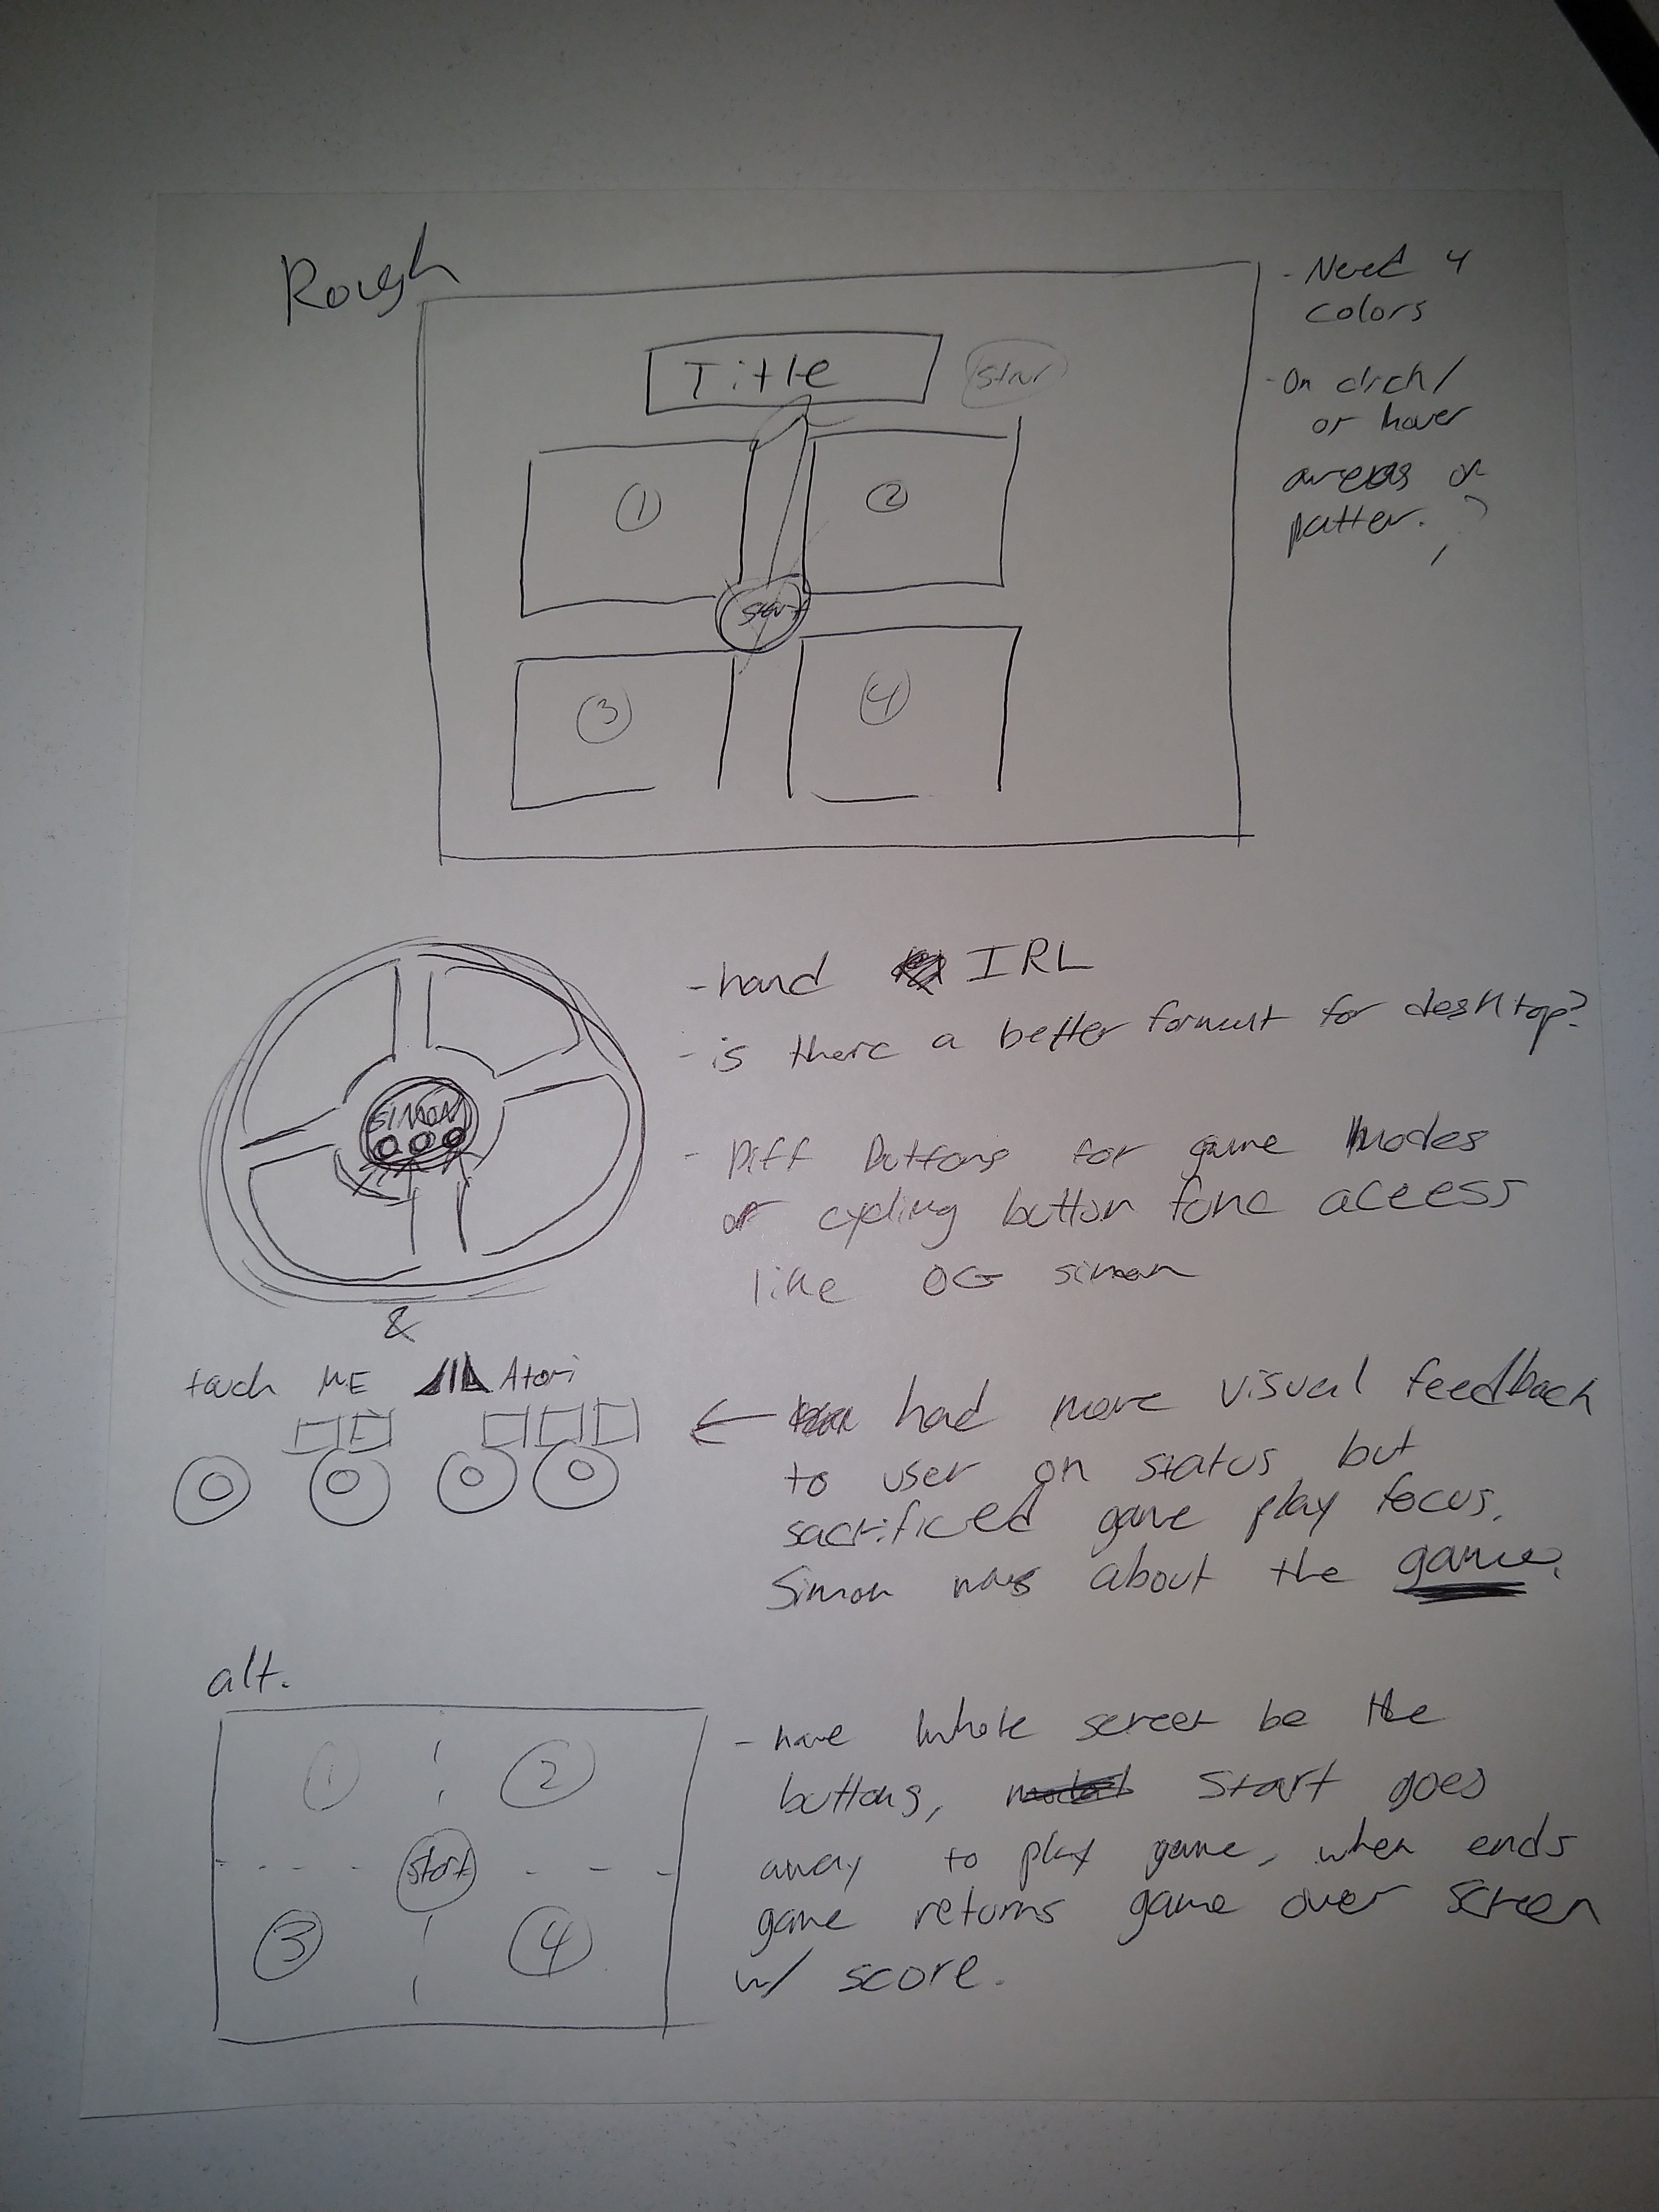 Rough
Title
Start
①
②
Start
③
④
- Need 4
colors
- On click/
or hover
areas or
patter. ?
SIMON
- hand IRL
- is there a better format for desktop?
- Diff buttons for game modes
or cycling button func access
like OG simon
&
touch ME Atari
← had more visual feedback
to user on status but
sacrificed game play focus.
Simon was about the game.
alt.
①
②
Start
③
④
- have whole screen be the
buttons, Start goes
away to play game, when ends
game returns game over screen
w/ score.